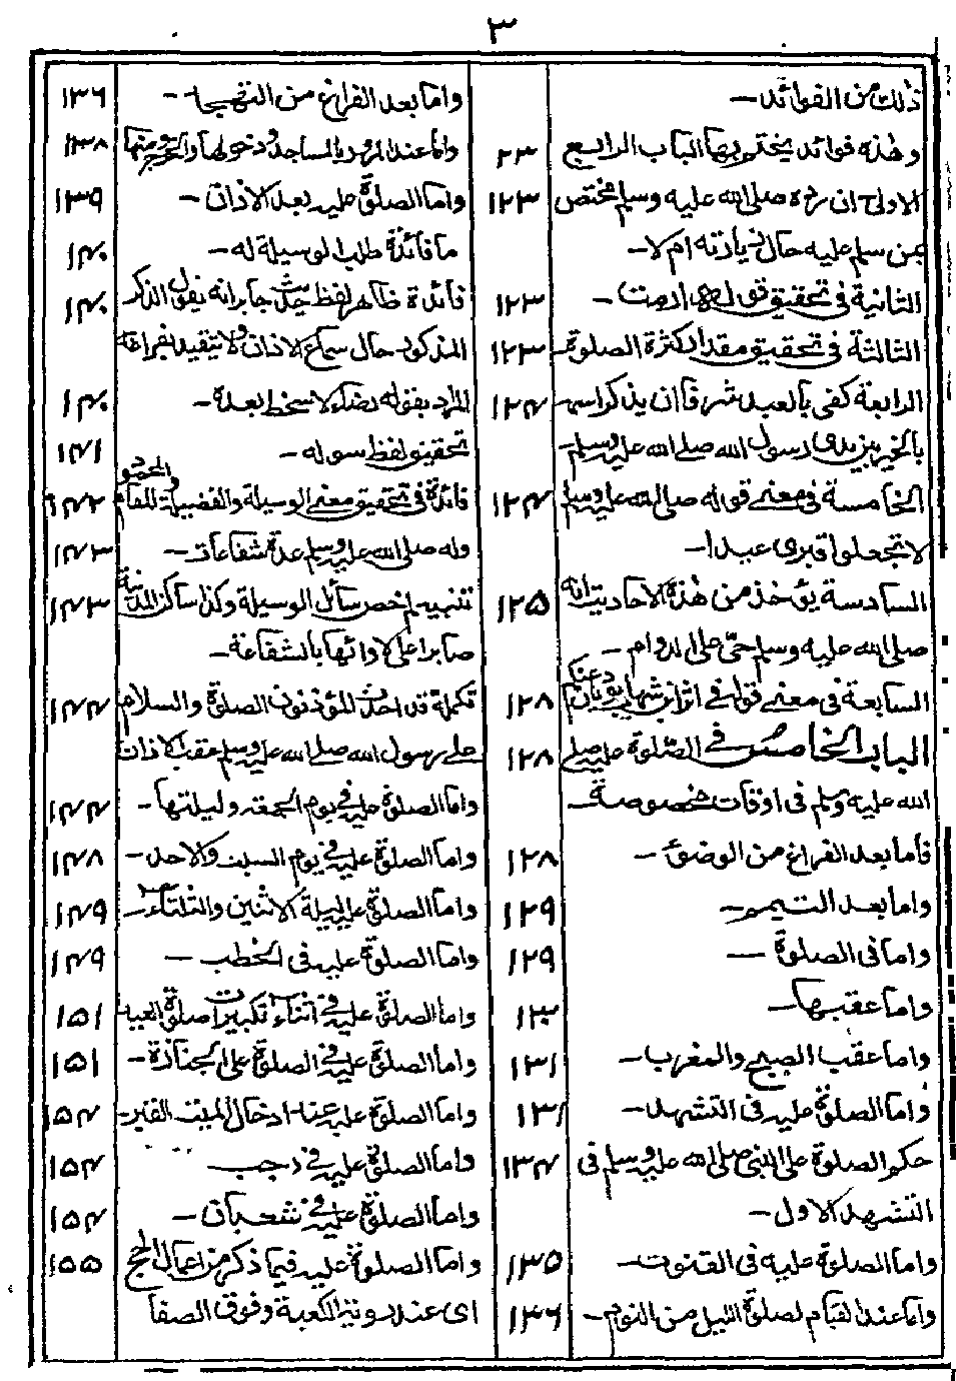 ٣
ذلك من الفوائد—
وهذه فوائد يختم بها الباب الرابع ٢٣
الاولى ان رده صلى الله عليه وسلم مختص ١٢٣
بمن سلم عليه حال زيادته ام لا—
الثانية فى تحقيق قوله ارمت— ١٢٣
الثالثة فى تحقيق مقدار كثرة الصلوة— ١٢٣
الرابعة كفى بالعبد شرفا ان يذكر اسمه ١٢٤
بالخير بين يدى رسول الله صلى الله عليه وسلم—
الخامسة فى معنى قوله صلى الله عليه وسلم ١٢٤
لا تجعلوا قبرى عيدا—
السادسة يؤخذ من هذه الاحاديث انه ١٢٥
صلى الله عليه وسلم حىّ على الدوام—
السابعة فى معنى قوله فى اثر ابن شهاب يؤديان عنكم ١٢٨
الباب الخامس فى الصّلوة عليه صلى ١٢٨
الله عليه وسلم فى اوقات مخصوصة—
فاما بعد الفراغ من الوضوء— ١٢٨
واما بعد التيمم— ١٢٩
واما فى الصلوة— ١٢٩
واما عقبها— ١٣٠
واما عقب الصبح والمغرب— ١٣١
واما الصلوة عليه فى التشهد— ١٣١
حكم الصلوة على النبى صلى الله عليه وسلم فى ١٣٤
التشهد الاول—
واما الصلوة عليه فى القنوت— ١٣٥
واما عند القيام لصلوة الليل من النوم— ١٣٦
واما بعد الفراغ من التهجد— ١٣٦
واما عند المرور بالمساجد ودخولها والخروج منها ١٣٨
واما الصلوة عليه بعد الاذان— ١٣٩
ما فائدة طلب الوسيلة له— ١٤٠
فائدة ظاهر لفظ حديث جابر انه يقول الذكر ١٤٠
المذكور حال سماع الاذان ولا يتقيد بفراغه
المراد بقوله رضاء لا سخط بعده— ١٤٠
تحقيق لفظ سوله— ١٤١
فائدة فى تحقيق معنى الوسيلة والفضيلة والمقام المحمود ١٤٢
وله صلى الله عليه وسلم عدة شفاعات— ١٤٣
تنبيه لم خص سائل الوسيلة وكذا ساكن المدينة ١٤٣
صابرا على لاوائها بالشفاعة—
تكملة قد احدث المؤذنون الصلوة والسلام ١٤٤
على رسول الله صلى الله عليه وسلم عقب الاذان
واما الصلوة عليه فى يوم الجمعة وليلتها— ١٤٤
واما الصلوة عليه فى يوم السبت والاحد— ١٤٨
واما الصلوة عليه ليلة الاثنين والثلثاء— ١٤٩
واما الصلوة عليه فى الخطب— ١٤٩
واما الصلوة عليه فى اثناء تكبيرات صلوة العيد ١٥١
واما الصلوة عليه فى الصلوة على الجنازة— ١٥١
واما الصلوة عليه عند ادخال الميت القبر— ١٥٤
واما الصلوة عليه فى رجب ١٥٤
واما الصلوة عليه فى شعبان— ١٥٤
واما الصلوة عليه فيما ذكر من اعمال الحج ١٥٥
اى عند روية الكعبة وفوق الصفا